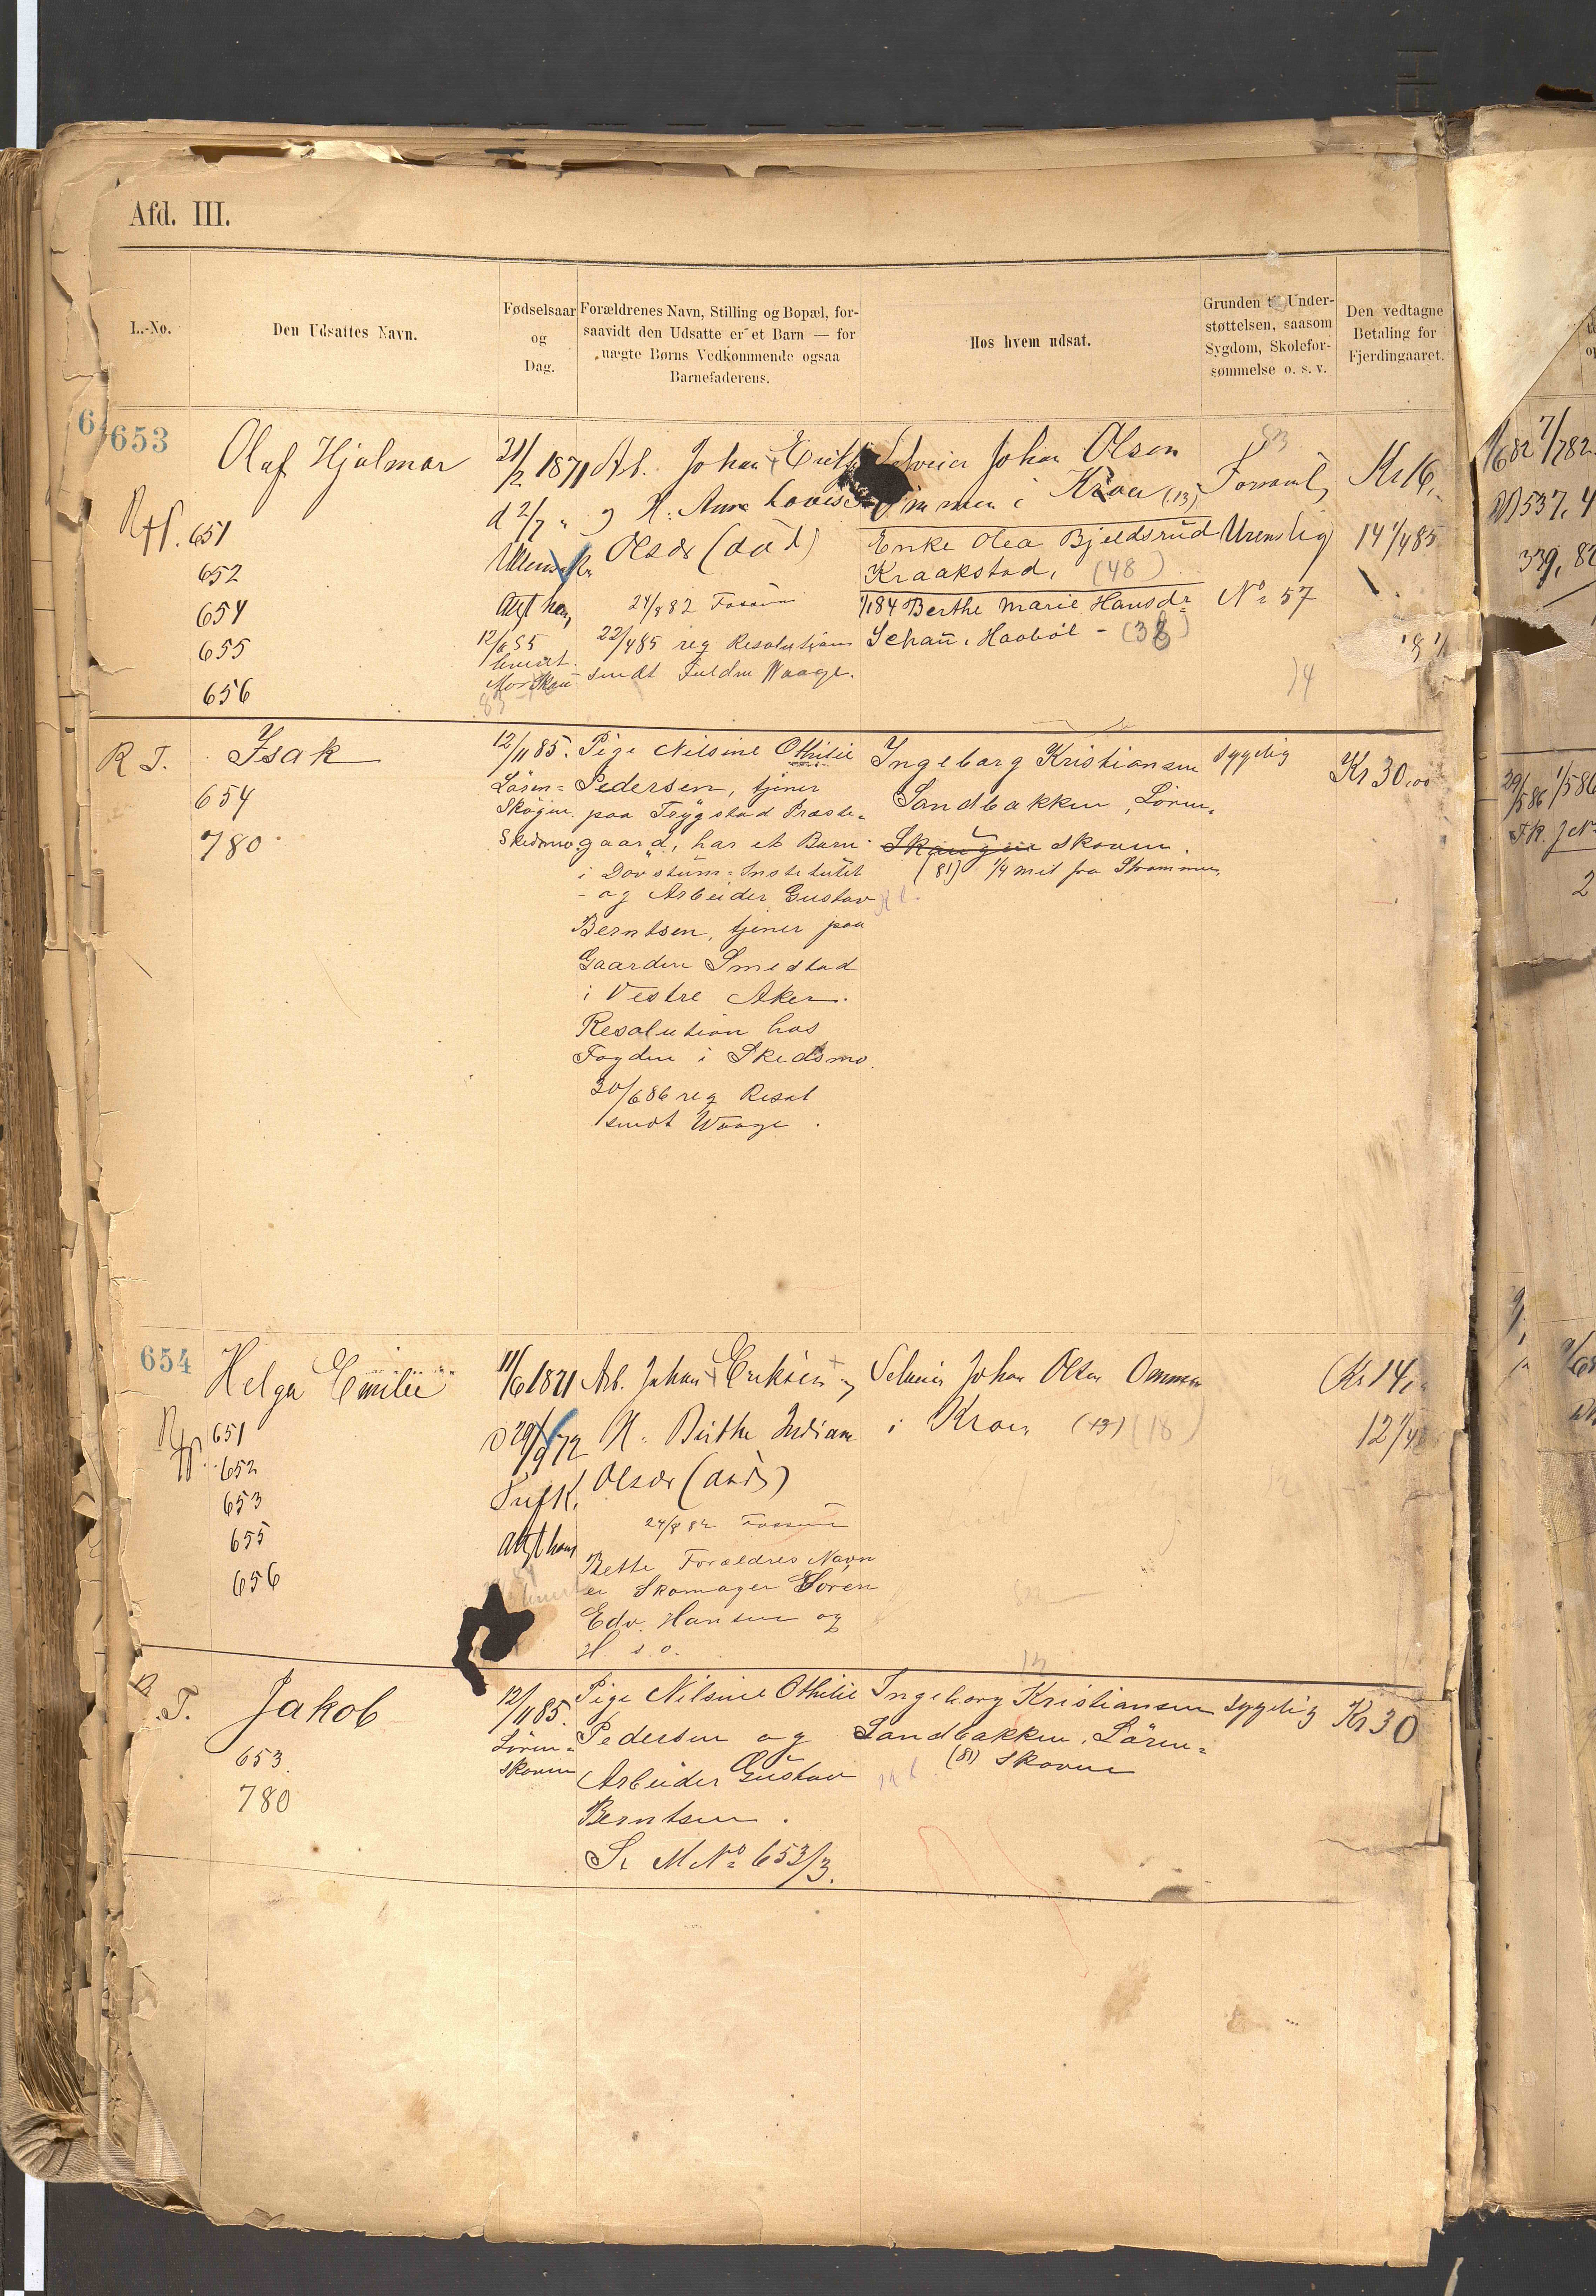 Afd. III.
L.-No.
Den Udsattes Navn.
Fødselsaar
og
Dag.
Forældrenes Navn, Stilling og Bopæl, for-
saavidt den Udsatte er et Barn — for
uægte Børns Vedkommende ogsaa
Barnefaderens.
Hos hvem udsat.
Grunden til Under-
støttelsen, saasom
Sygdom, Skolefor-
sømmelse o. s. v.
Den vedtagne
Betaling for
Fjerdingaaret.
653
Olaf Hjalmar
651
652
654
655
656
21/2 1871
d 2/7 "
Arb. Johan
H. Anna Lovise
Olsdr (død)
24/8 82 Fossum
22/4 85 reg Resolution
sendt Fuldm Waage.
Selveier Johan Olsen
Ommen i Kroer (13)
Enke Olea Bjeldsrud
Kraakstad, (48)
1/1 84 Berthe Marie Hansdr
Schau, Haabøl - (38)
Urenslig
No 57
Kr 16,
14 1/4 85
R T.
Isak
654
780
12/11 85.
Lören=
Skogen
Skedsmo
Pige Nilsine Othilie
Pedersen, tjener
paa Trygstad Præste=
gaard, har et Barn
i Døvstum=Institutet
- og Arbeider Gustav
Berntsen, tjener paa
Gaarden Smestad
i Vestre Aker.
Resolution hos
Fogden i Skedsmo.
30/6 86 reg Resol
sendt Waage.
Ingeborg Kristiansen
Sandbakken, Lören=
Skaugen skoven.
(81) 1/4 mil fra Strømmen
sygelig
Kr 30,00
654
Helga Emilie
651
652
653
655
656
11/6 1871
D 29/9 72
Arb. Johan Eriksen og
H. Birthe Indiane
Olsdr (død)
24/8 82 Fossum
Rette Forældres Navn
er Skomager Søren
Edv. Hansen og
H. s. o.
Selveier Johan Olsen Ommen
i Kroer (13) (18)
Kr 14,
R.T.
Jakob
653.
780
12/11 85.
Lören=
skoven
Pige Nilsine Othilie
Pedersen og
Arbeider Gustav
Berntsen.
Se M No 653/3.
Ingeborg Kristiansen
Sandbakken, Lören=
(81) skoven
sygelig
Kr 30